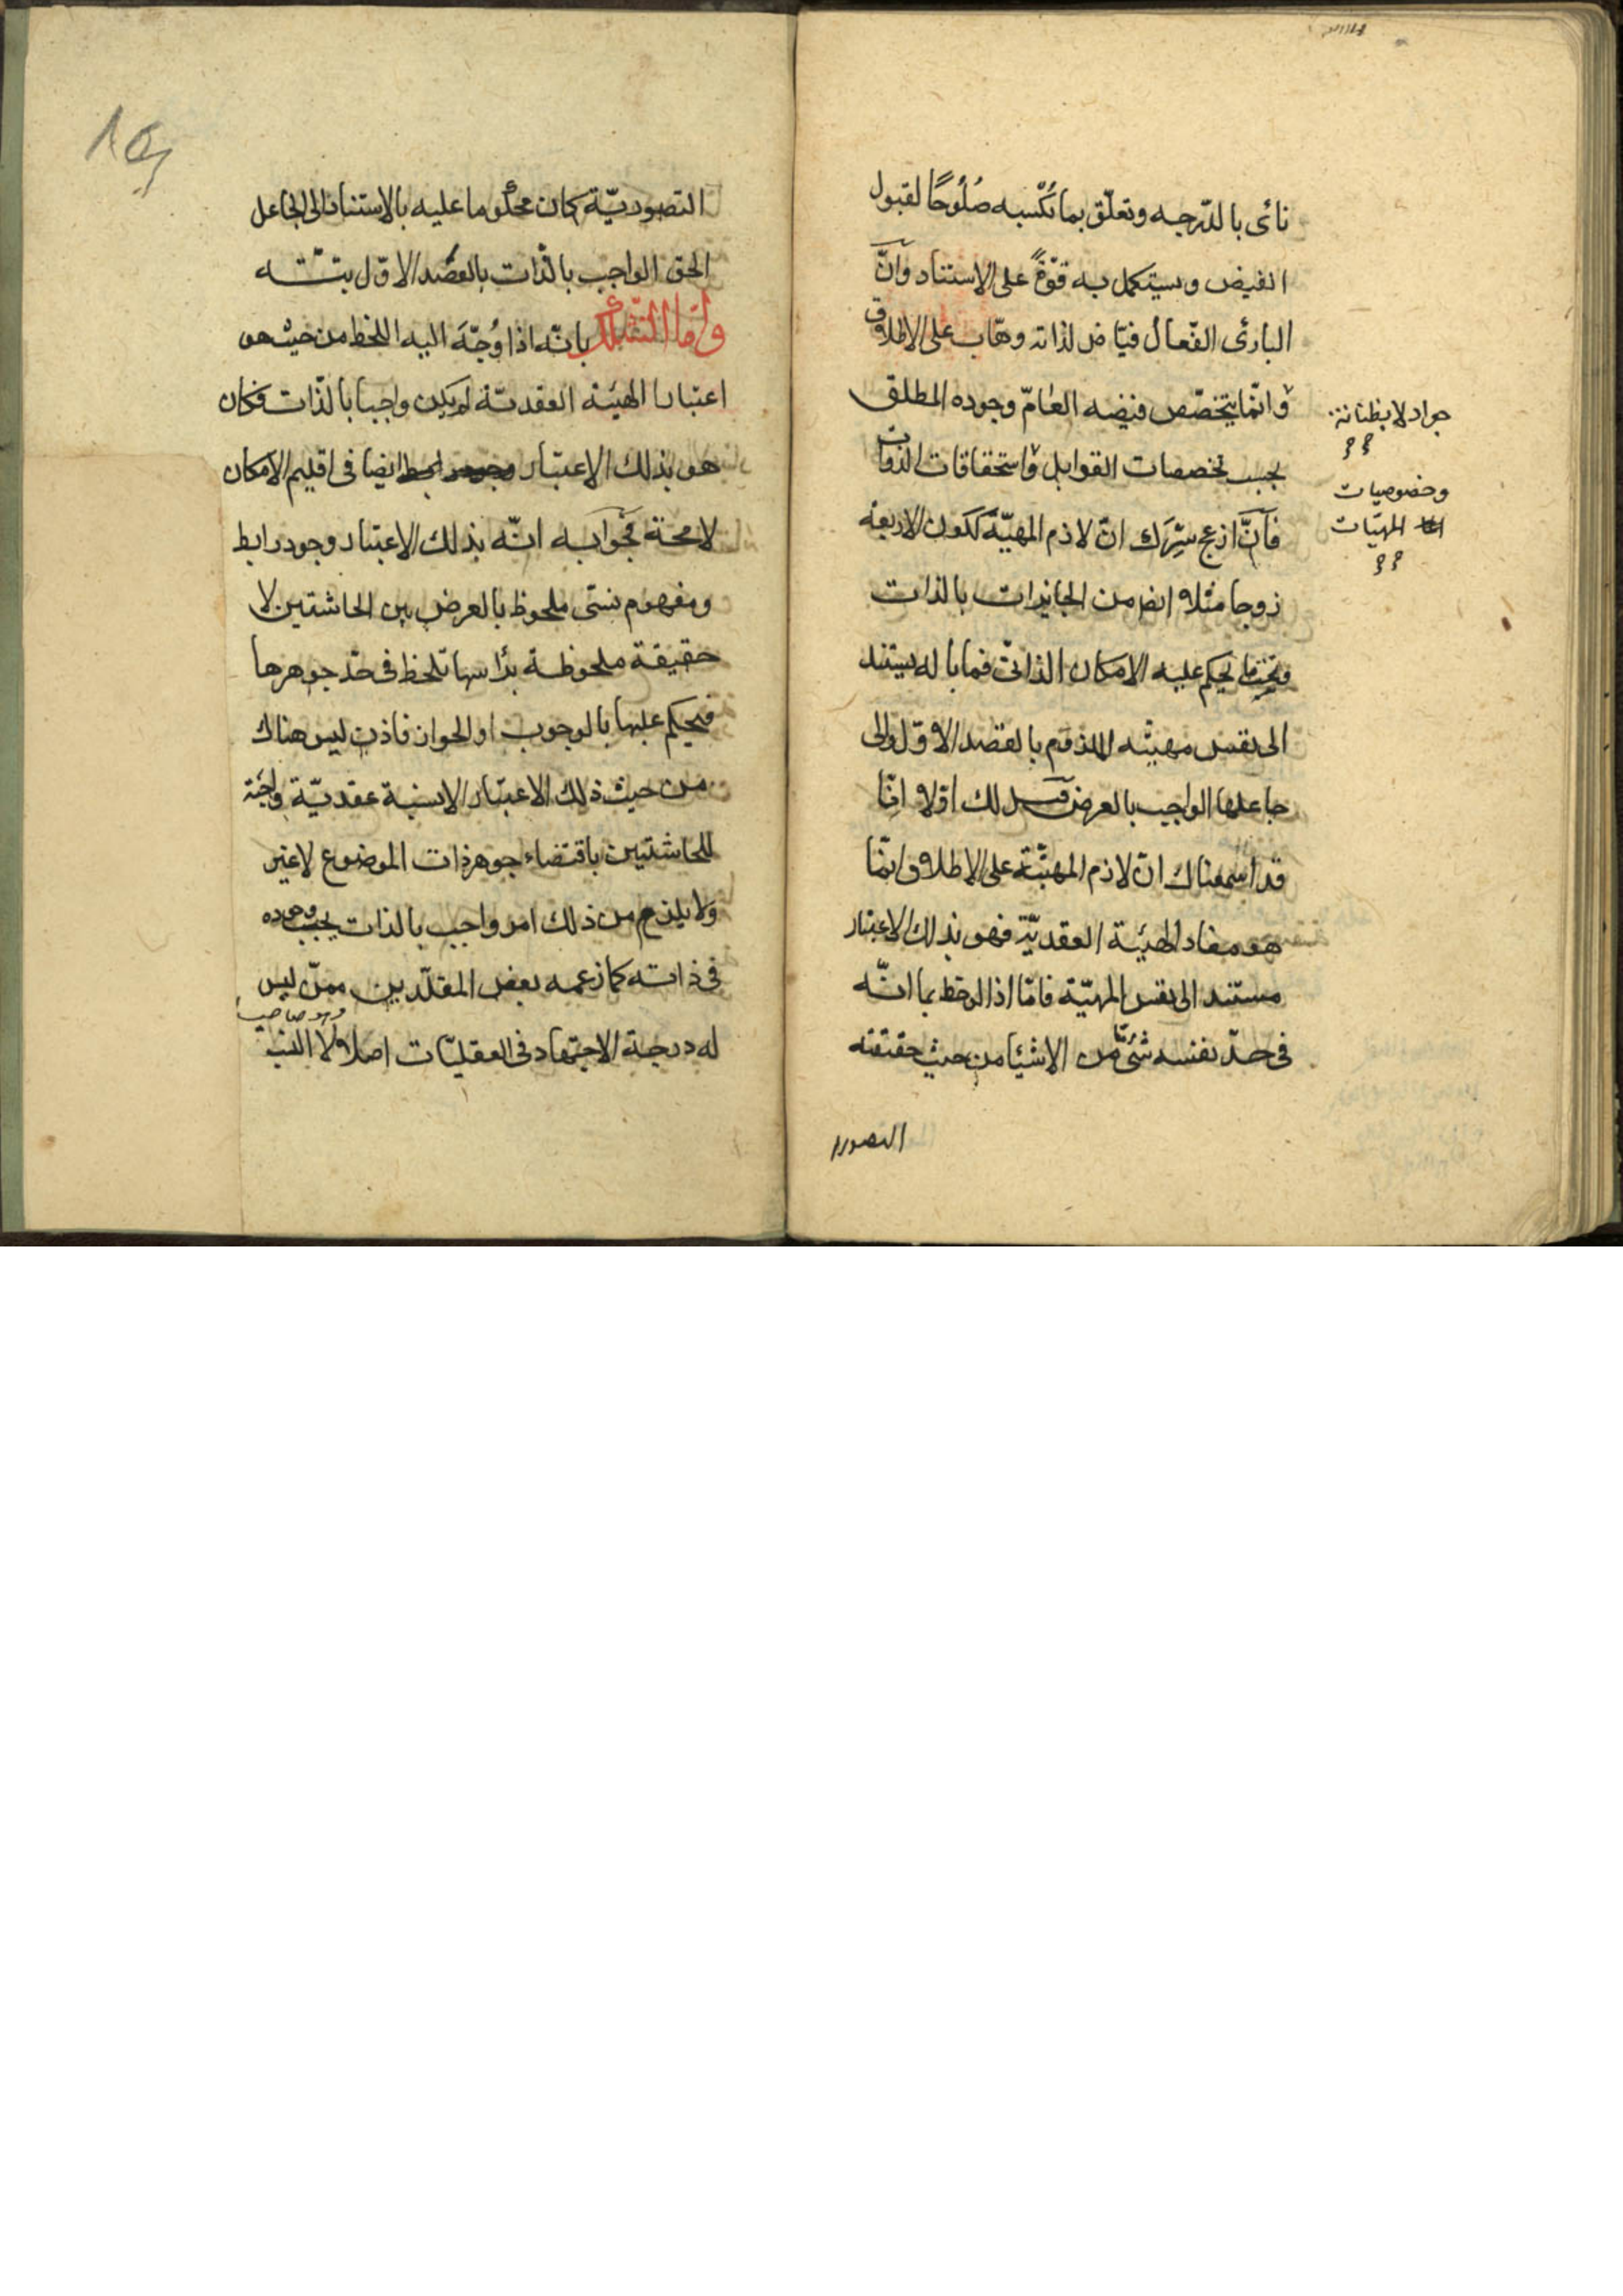 نأى بالدرجه وتعلّق بما تُكْسبه صُلُوحًا لقبول
الفيض ويستكمل به قوّةً على الاستناد وانّ
البارئ الفّعال فيّاض لذاته وهّاب على الاطلاق
وانّما يتخصّص فيضه العامّ وجوده المطلق
بحسب تخصصات القوابل واستحقاقات الذوات
فآنّ ازعج سِرَّك انّ لازم المهيّة ككون الاربعة
زوجا مثلا ايض من الجايزات بالذات
يحكم عليه الامكان الذاتىّ فما باله يستند
الى نفس مهيته الملزوم بالقصد الاوّل والى
جاعلها الواجب بالعرض لك اوّلا انّا
قد اسمعناك انّ لازم المهيّة على الاطلاق انّما
هو مفاد الهيئة العقديّة فهو بذلك الاعتبار
مستند الى نفس المهيّة فامّا اذا لوحظ بما انّه
فى حدّ نفسه شئ مّا من الاشيأ من حيث حقيقته
جواد لا بظنانة
وخصوصيات
المهيّات
التصوري
التصوريّة كان محكوما عليه بالاستناد الى الجاعل
الحق الواجب بالذّات بالقصد الاوّل بتّة
وامّا التشكك بانّه اذا وُجّهَ اليه اللحظ من حيث هو
اعتبار الهيئة العقديّة لم يكن واجبا بالذّات فكان
هو بذلك الاعتبار ايضا فى اقليم الامكان
لا محة فجوابه انّه بذلك الاعتبار وجود رابط
ومفهوم نسبّى ملحوظ بالعرض بين الحاشتين لا
حقيقة ملحوظة برأسها تلحظ فى حدّ جوهرها
فيحكم عليها بالوجوب او الجواز فاذن ليس هناك
من حيث ذلك الاعتبار الا نسبة عقديّة واجبة
للحاشتين باقتضاء جوهر ذات الموضوع لا غير
ولا يلزم من ذلك امر واجب بالذات يجب وجوده
فى ذاته كما زعمه بعض المقلّدين ممّن ليس
وهو صاحب
له درجة الاجتهاد فى العقليّات اصلا ولا